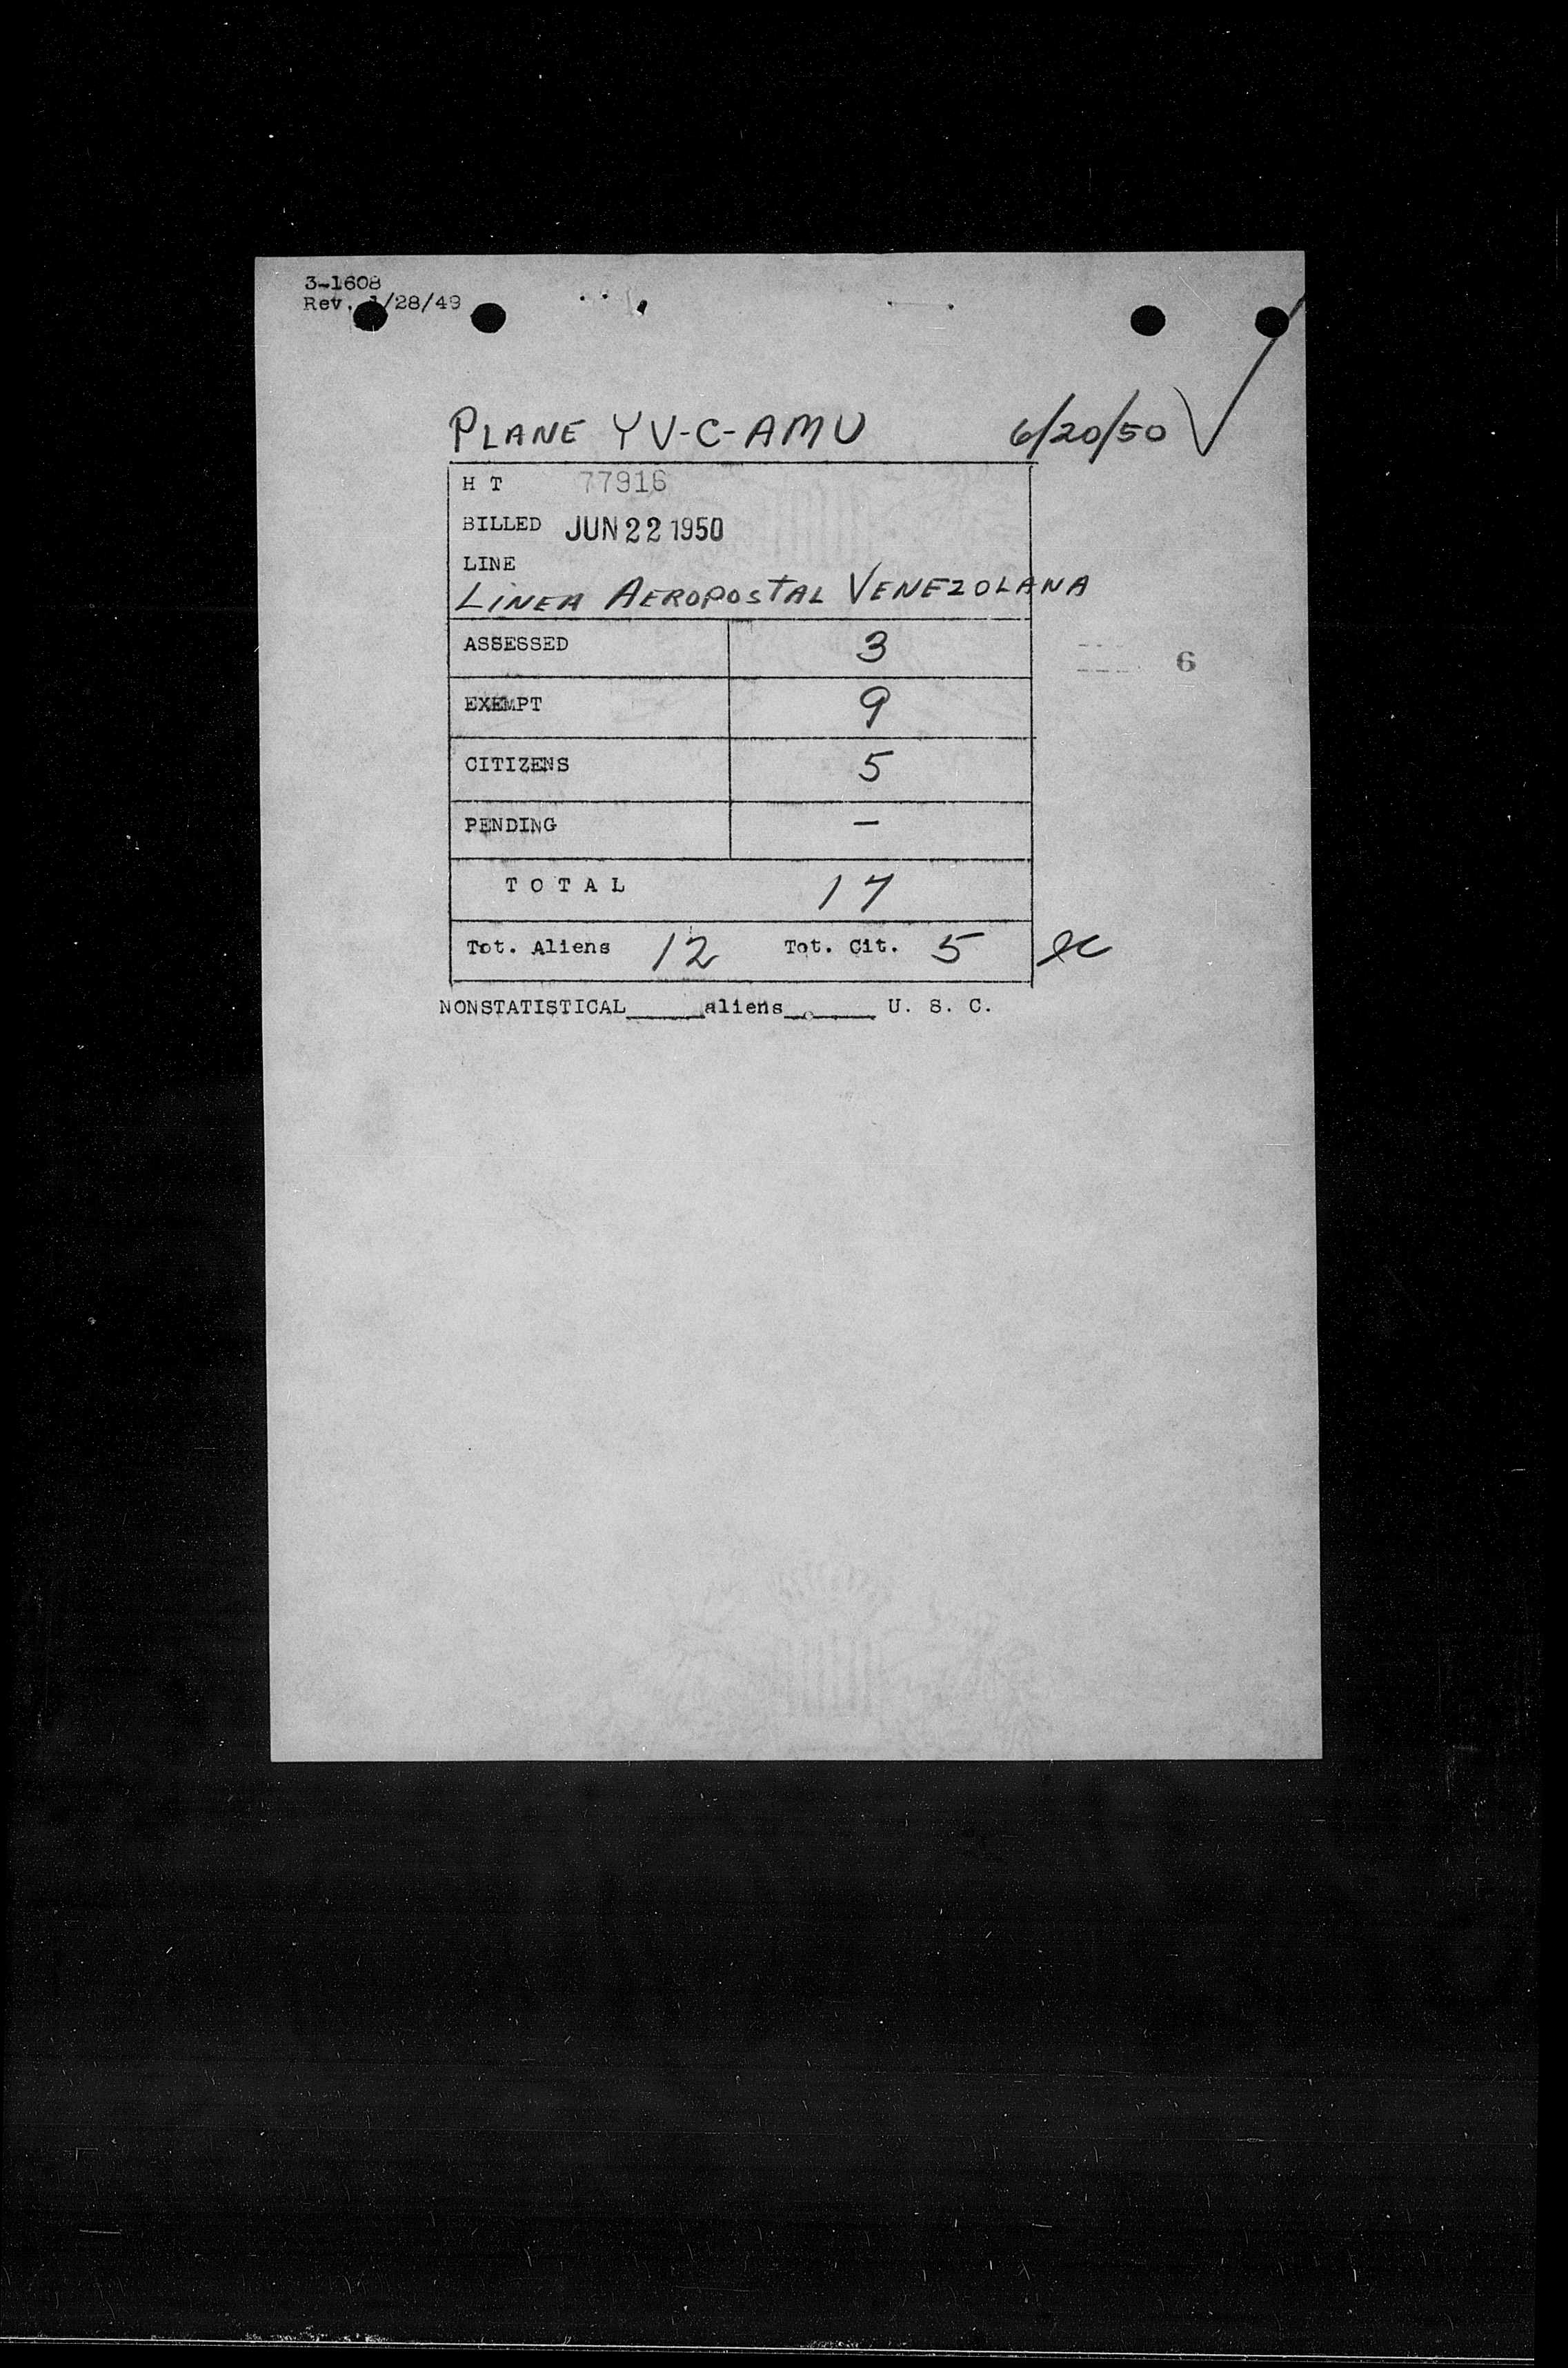 3-1608
Rev. 1/28/49
PLANE YV-C-AMU 6/20/50
H T 77916
BILLED JUN 22 1950
LINE
LINEA AEROPOSTAL VENEZOLANA
ASSESSED 3
6
EXEMPT 9
CITIZENS 5
PENDING –
TOTAL 17
Tot. Aliens 12 Tot. Cit. 5
NONSTATISTICAL_____aliens______ U. S. C.